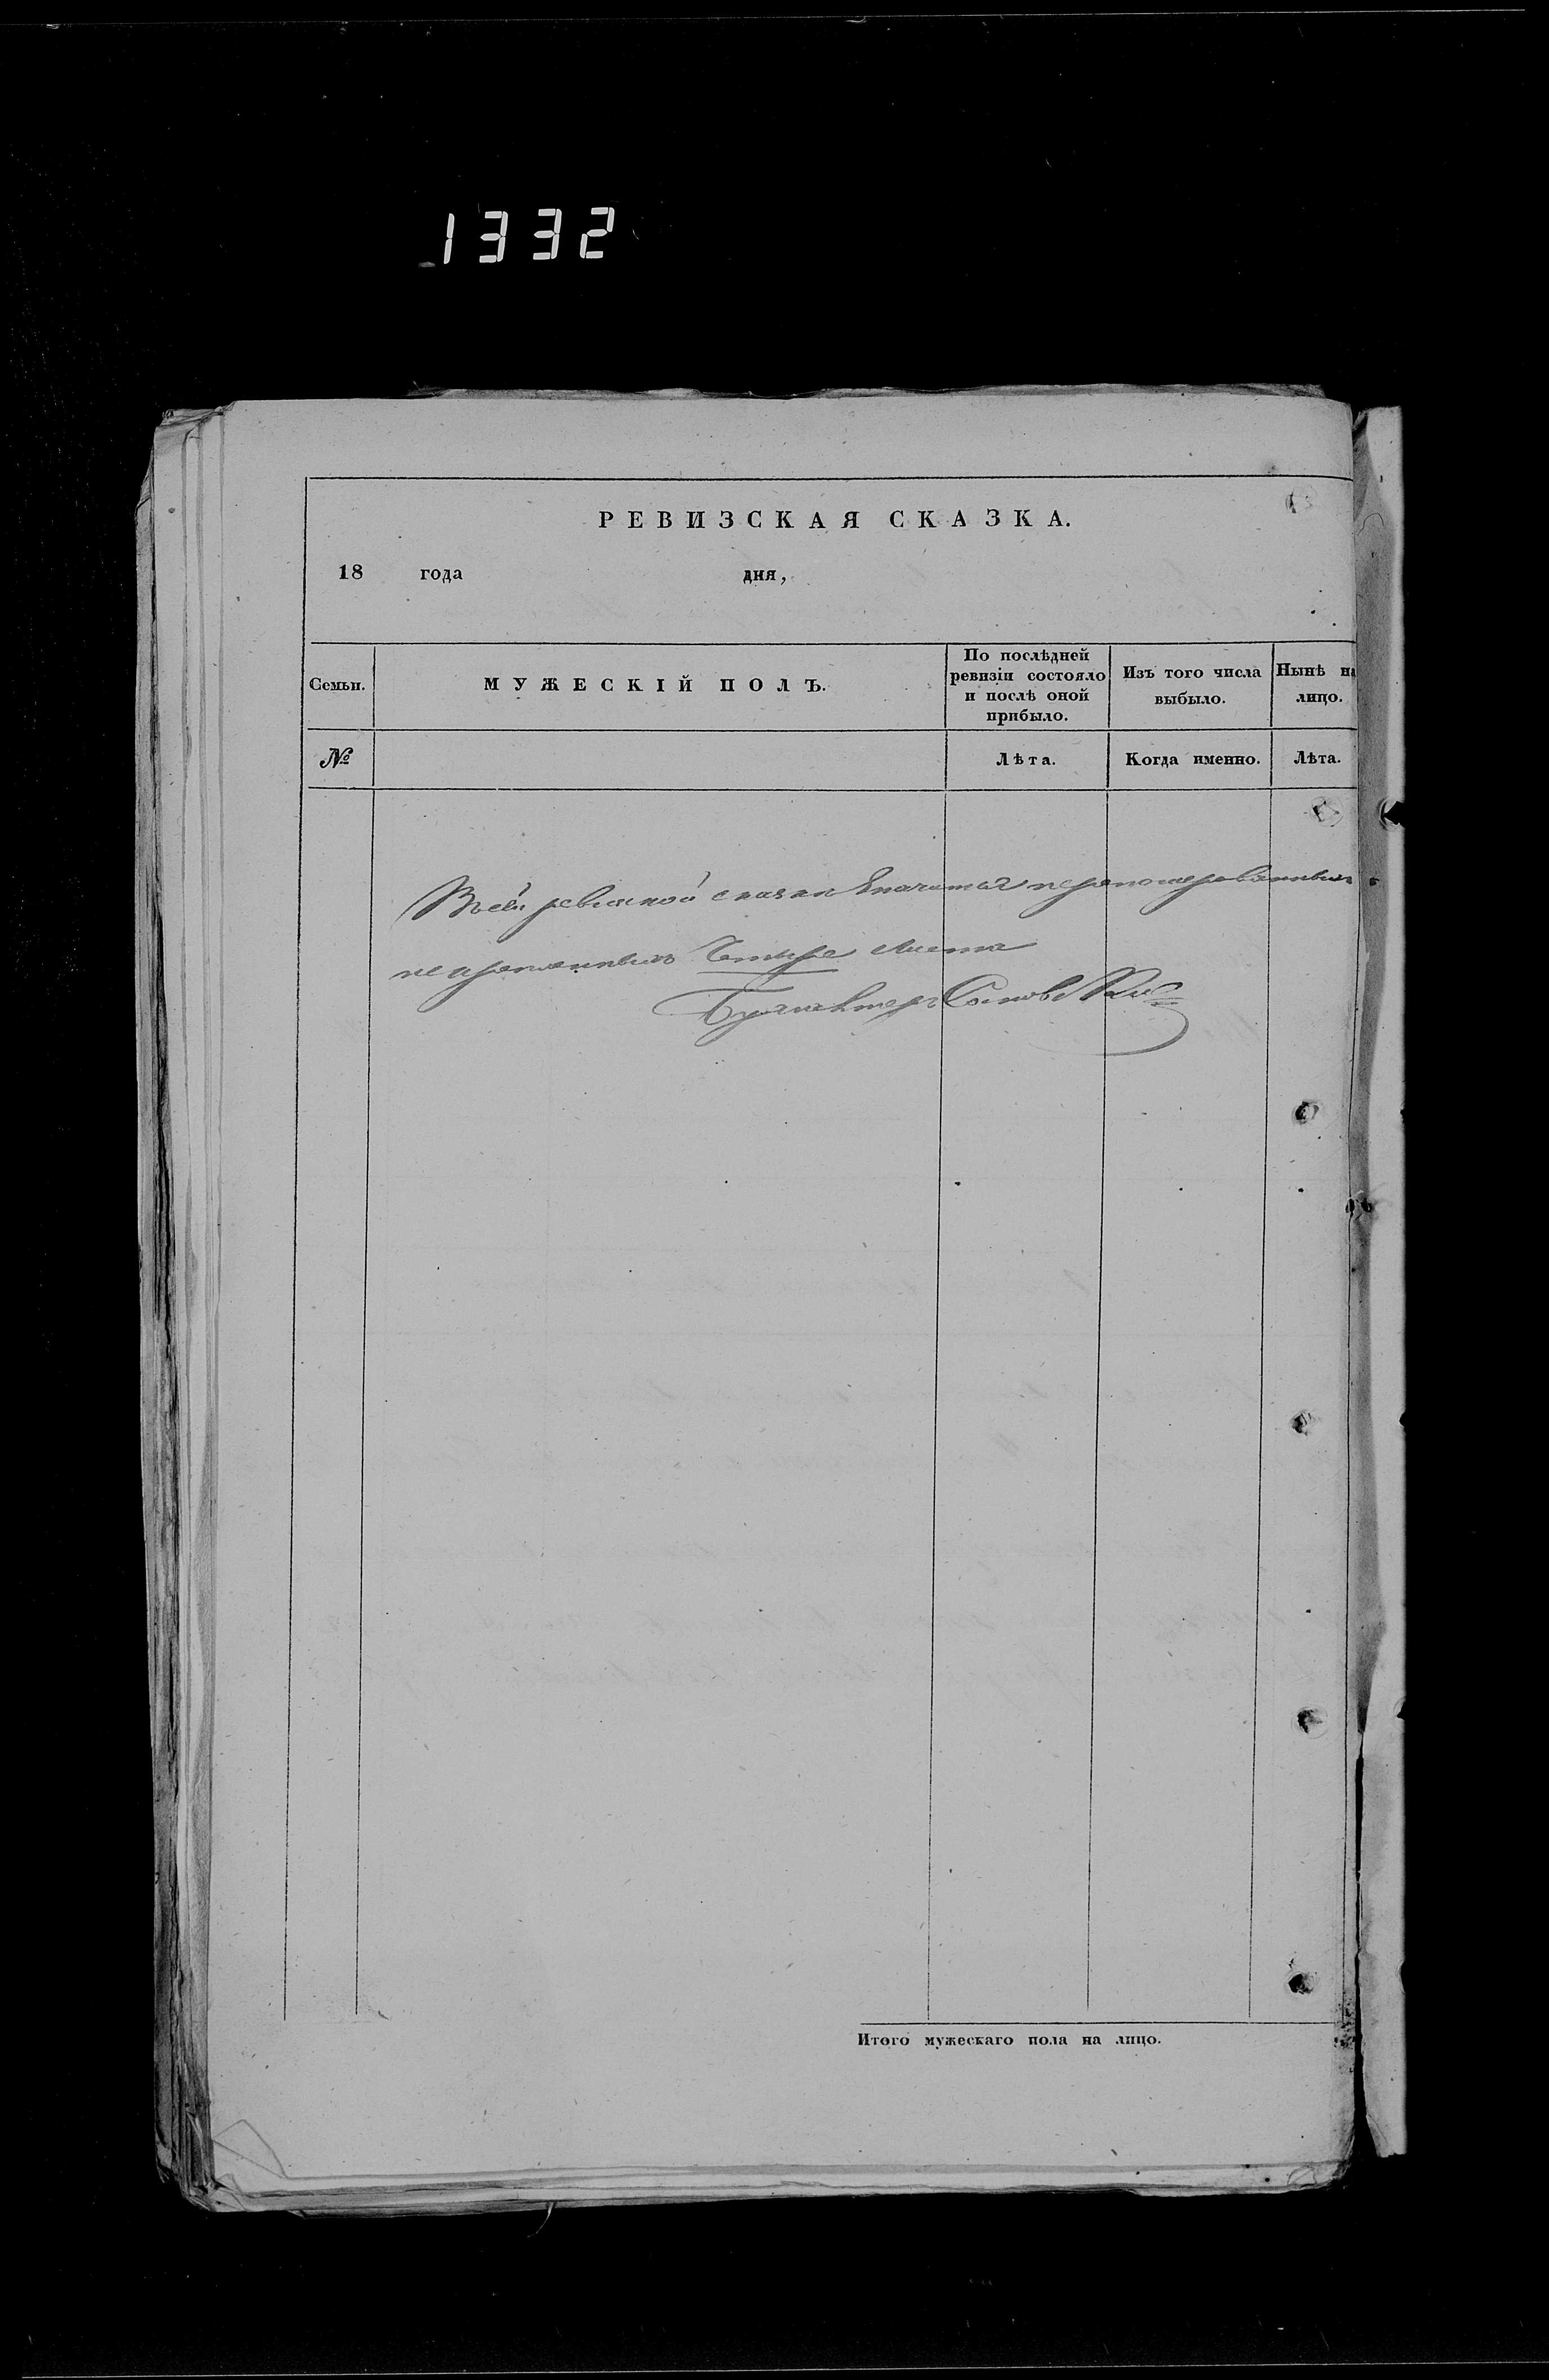 1332
РЕВИЗСКАЯ СКАЗКА.
18 года дня,
Семьи.
МУЖЕСКІЙ ПОЛЪ.
По послѣдней ревизіи состояло и послѣ оной прибыло.
Изъ того числа выбыло.
Нынѣ на лицо.
№
Лѣта.
Когда именно.
Лѣта.
Въ сей ревизской сказки значится перенумерованныхъ
Четыре листа
Бухгалтеръ
Итого мужескаго пола на лицо.